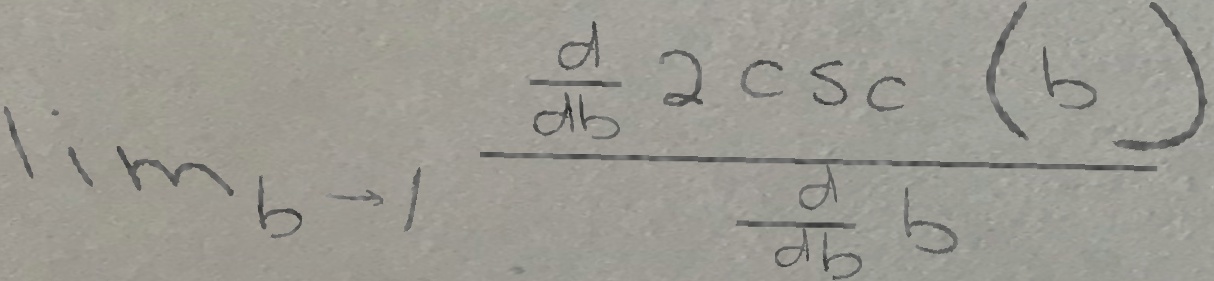 \lim_{b \to 1} \frac{\frac{d}{db} 2 \csc (b)}{\frac{d}{db} b}